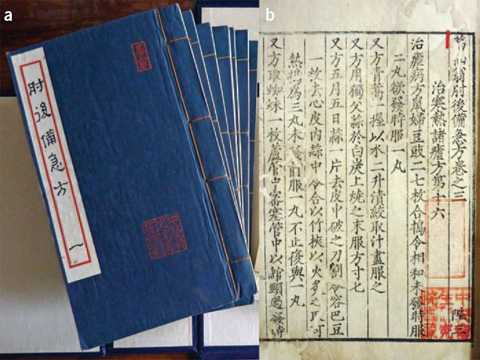 a
肘後備急方
一
b
葛仙翁肘後備急方卷之三
治寒熱諸瘧方第十六
治瘧病方鼠婦豆豉二七枚合搗令相和未發時服
二丸欲發時服一丸
又方青蒿一握以水二升漬絞取汁盡服之
又方用獨父蒜於白炭上燒之末服方寸七
又方五月五日蒜一片去皮中破之刀割令容巴豆
一枚去心皮內蒜中令合以竹挾以火炙之取可
熱搗為三丸未發前服一丸不止復與一丸
又方取蜘蛛一枚蘆管中密塞管中以綰頸過發時